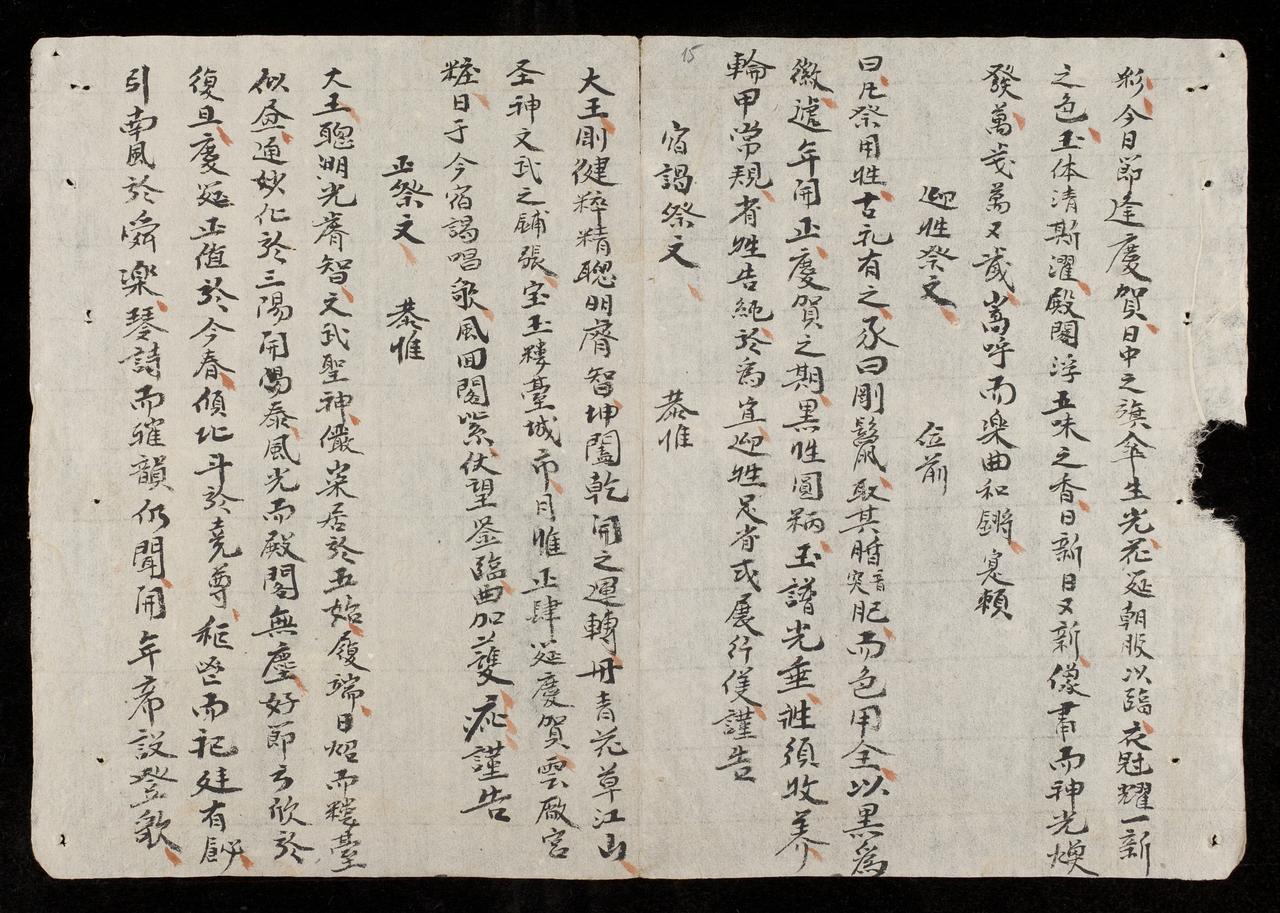 彩今日節逢慶賀日中之旗傘生光花筵朝服以臨衣冠耀一新
之色玉体清斯濯殿閣浮五味之香日新日又新儀肅而神光煥
發萬歲萬又歲嵩呼而楽曲和鏘寔頼
迎牲祭文 位前
曰凡祭用牲古礼有之豕曰剛鬣取其腯音突肥而色用全以黒為
徽遞年開正慶賀之期黒牲圓柄玉譜光垂牲須收养
輪甲常規省牲告純於為宜迎牲足肯或展行仅謹告
宿謁祭文 恭惟
大王剛健粹精聰明睿智坤闔乾開之運轉冊青花草江山
圣神文武之鋪張宝玉楼臺城市月惟正肆筵慶賀雲厰宮
粧日于今宿謁唱歌風回閣紫仗望鉴臨曲加護疵謹告
正祭文 恭惟
大王聰明光睿智文武聖神儼巣居於五始履端日炤而楼臺
似昼通妙化於三陽開啓泰風光而殿閣無塵好節方欣於
復旦慶筵正值於今春傾北斗於堯尊秬鬯而祀廷有飶
引南風於舜楽琴詩而雅韻仍聞開年席設登歌
15